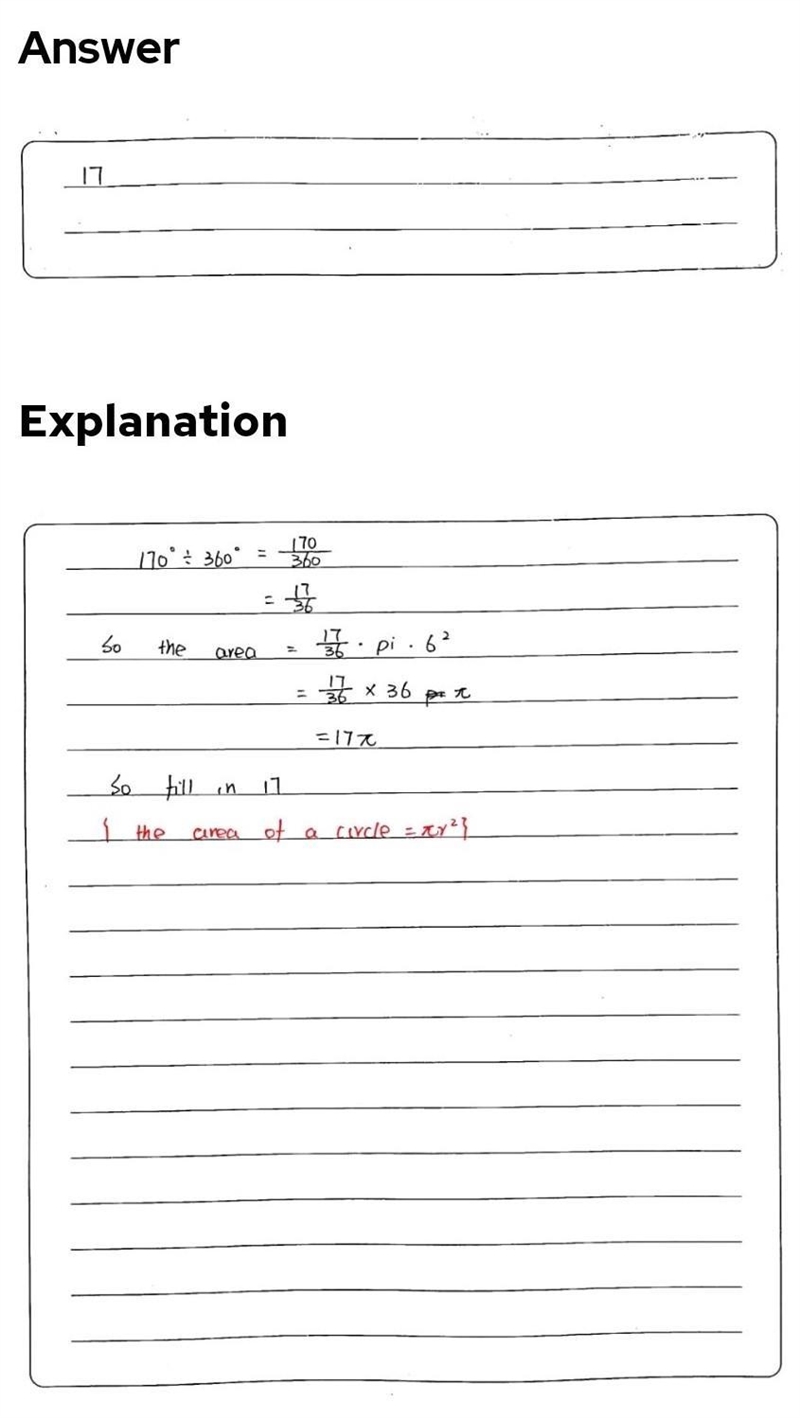 Answer
17
Explanation
170° ÷ 360° = 170/360
= 17/36
So the area = 17/36 · pi · 6²
= 17/36 × 36 π
= 17π
So fill in 17
{ the area of a circle = πr² }